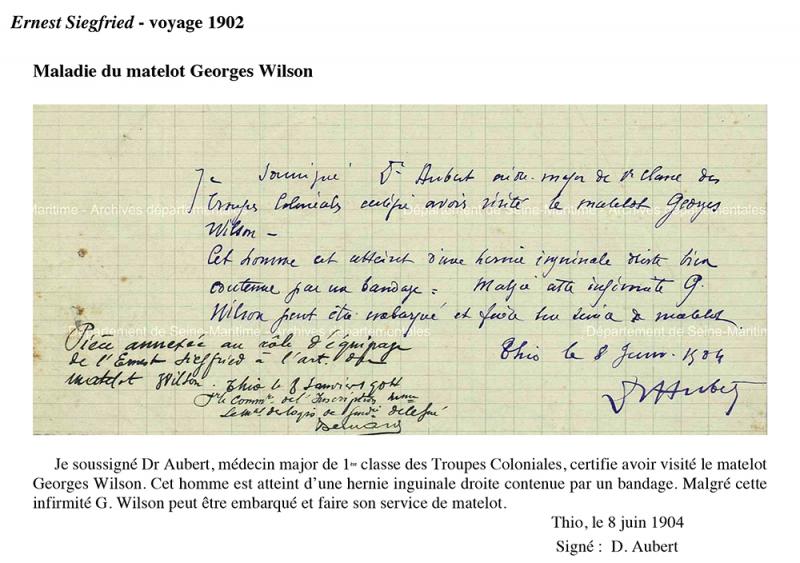 Ernest Siegfried - voyage 1902
Maladie du matelot Georges Wilson
Je soussigné Dr Aubert méde. major de 1e classe des
Troupes Coloniales certifie avoir visité le matelot Georges
Maritime - Archives départem Département de Seine-Maritime - Archives départementales
Wilson -
Cet homme est atteint d'une hernie inguinale droite bien
contenue par un bandage. Malgré cette infirmité G.
Wilson peut être embarqué et faire son service de matelot
Département de Seine-Maritime - Archives départementales Département de Seine-Maritime
Thio le 8 Janv. 1904
Dr Aubert
Pièce annexée au rôle d'équipage
de l'Ernest Siegfried à l'art. du
matelot Wilson. Thio le 8 Janvier 1904
le Commre de l'Inscription
le Mal de logis de gendie délégué
Je soussigné Dr Aubert, médecin major de 1re classe des Troupes Coloniales, certifie avoir visité le matelot
Georges Wilson. Cet homme est atteint d'une hernie inguinale droite contenue par un bandage. Malgré cette
infirmité G. Wilson peut être embarqué et faire son service de matelot.
Thio, le 8 juin 1904
Signé : D. Aubert